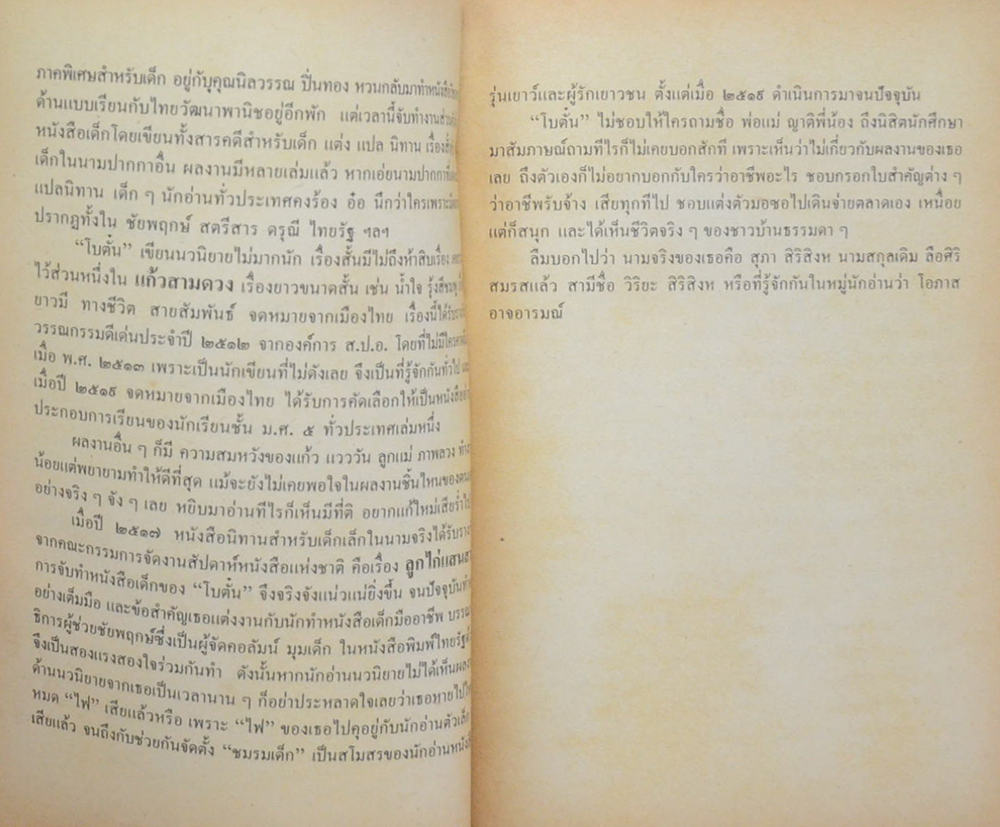 ภาคพิเศษสำหรับเด็ก อยู่กับคุณนิลวรรณ ปิ่นทอง หวนกลับมาทำหนังสือ
ด้านแบบเรียนกับไทยวัฒนาพานิชอยู่อีกพัก แต่เวลานี้จับทำงานสำ
หนังสือเด็กโดยเขียนทั้งสารคดีสำหรับเด็ก แต่ง แปล นิทาน เรื่องสั้น
เด็กในนามปากกาอื่น ผลงานมีหลายเล่มแล้ว หากเอ่ยนามปากกา
แปลนิทาน เด็ก ๆ นักอ่านทั่วประเทศคงร้อง อ๋อ นึกว่าใครเพราะ
ปรากฏทั้งใน ชัยพฤกษ์ สตรีสาร ดรุณี ไทยรัฐ ฯลฯ
“โบตั๋น” เขียนนวนิยายไม่มากนัก เรื่องสั้นมีไม่ถึงห้าสิบเรื่อง
ไว้ส่วนหนึ่งใน แก้วสามดวง เรื่องยาวขนาดสั้น เช่น น้ำใจ
ยาวมี ทางชีวิต สายสัมพันธ์ จดหมายจากเมืองไทย เรื่องนี้ได้รับ
วรรณกรรมดีเด่นประจำปี ๒๕๑๒ จากองค์การ ส.ป.อ. โดยที่ไม่มีใคร
เมื่อ พ.ศ. ๒๕๑๓ เพราะเป็นนักเขียนที่ไม่ดังเลย จึงเป็นที่รู้จักกันทั่วไป
เมื่อปี ๒๕๑๙ จดหมายจากเมืองไทย ได้รับการคัดเลือกให้เป็นหนังสือ
ประกอบการเรียนของนักเรียนชั้น ม.ศ. ๕ ทั่วประเทศเล่มหนึ่ง
ผลงานอื่น ๆ ก็มี ความสมหวังของแก้ว แวววัน ลูกแม่ ภาพลวง
น้อยแต่พยายามทำให้ดีที่สุด แม้จะยังไม่เคยพอใจในผลงานชิ้นไหนของ
อย่างจริง ๆ จัง ๆ เลย หยิบมาอ่านทีไรก็เห็นมีที่ติ อยากแก้ใหม่เสียร่ำ
เมื่อปี ๒๕๑๗ หนังสือนิทานสำหรับเด็กเล็กในนามจริงได้รับ
จากคณะกรรมการจัดงานสัปดาห์หนังสือแห่งชาติ คือเรื่อง ลูกไก่แสน
การจับทำหนังสือเด็กของ “โบตั๋น” จึงจริงจังแน่วแน่ยิ่งขึ้น จนปัจจุบัน
อย่างเต็มมือ และข้อสำคัญเธอแต่งงานกับนักทำหนังสือเด็กมืออาชีพ บรรณ
ธิการผู้ช่วยชัยพฤกษ์ซึ่งเป็นผู้จัดคอลัมน์ มุมเด็ก ในหนังสือพิมพ์ไทยรัฐ
จึงเป็นสองแรงสองใจร่วมกันทำ ดังนั้นหากนักอ่านนวนิยายไม่ได้เห็นผล
ด้านนวนิยายจากเธอเป็นเวลานาน ๆ ก็อย่าประหลาดใจเลยว่าเธอหายไป
หมด “ไฟ” เสียแล้วหรือ เพราะ “ไฟ” ของเธอไปคุอยู่กับนักอ่านตัวเล็ก
เสียแล้ว จนถึงกับช่วยกันจัดตั้ง “ชมรมเด็ก” เป็นสโมสรของนักอ่านหนัง
รุ่นเยาว์และผู้รักเยาวชน ตั้งแต่เมื่อ ๒๕๑๙ ดำเนินการมาจนปัจจุบัน
“โบตั๋น” ไม่ชอบให้ใครถามชื่อ พ่อแม่ ญาติพี่น้อง ถึงนิสิตนักศึกษา
มาสัมภาษณ์ถามทีไรก็ไม่เคยบอกสักที เพราะเห็นว่าไม่เกี่ยวกับผลงานของเธอ
เลย ถึงตัวเองก็ไม่อยากบอกกับใครว่าอาชีพอะไร ชอบกรอกใบสำคัญต่าง ๆ
ว่าอาชีพรับจ้าง เสียทุกทีไป ชอบแต่งตัวมอซอไปเดินจ่ายตลาดเอง เหนื่อย
แต่ก็สนุก และได้เห็นชีวิตจริง ๆ ของชาวบ้านธรรมดา ๆ
ลืมบอกไปว่า นามจริงของเธอคือ สุภา สิริสิงห นามสกุลเดิม ลือศิริ
สมรสแล้ว สามีชื่อ วิริยะ สิริสิงห หรือที่รู้จักกันในหมู่นักอ่านว่า โอภาส
อาจอารมณ์